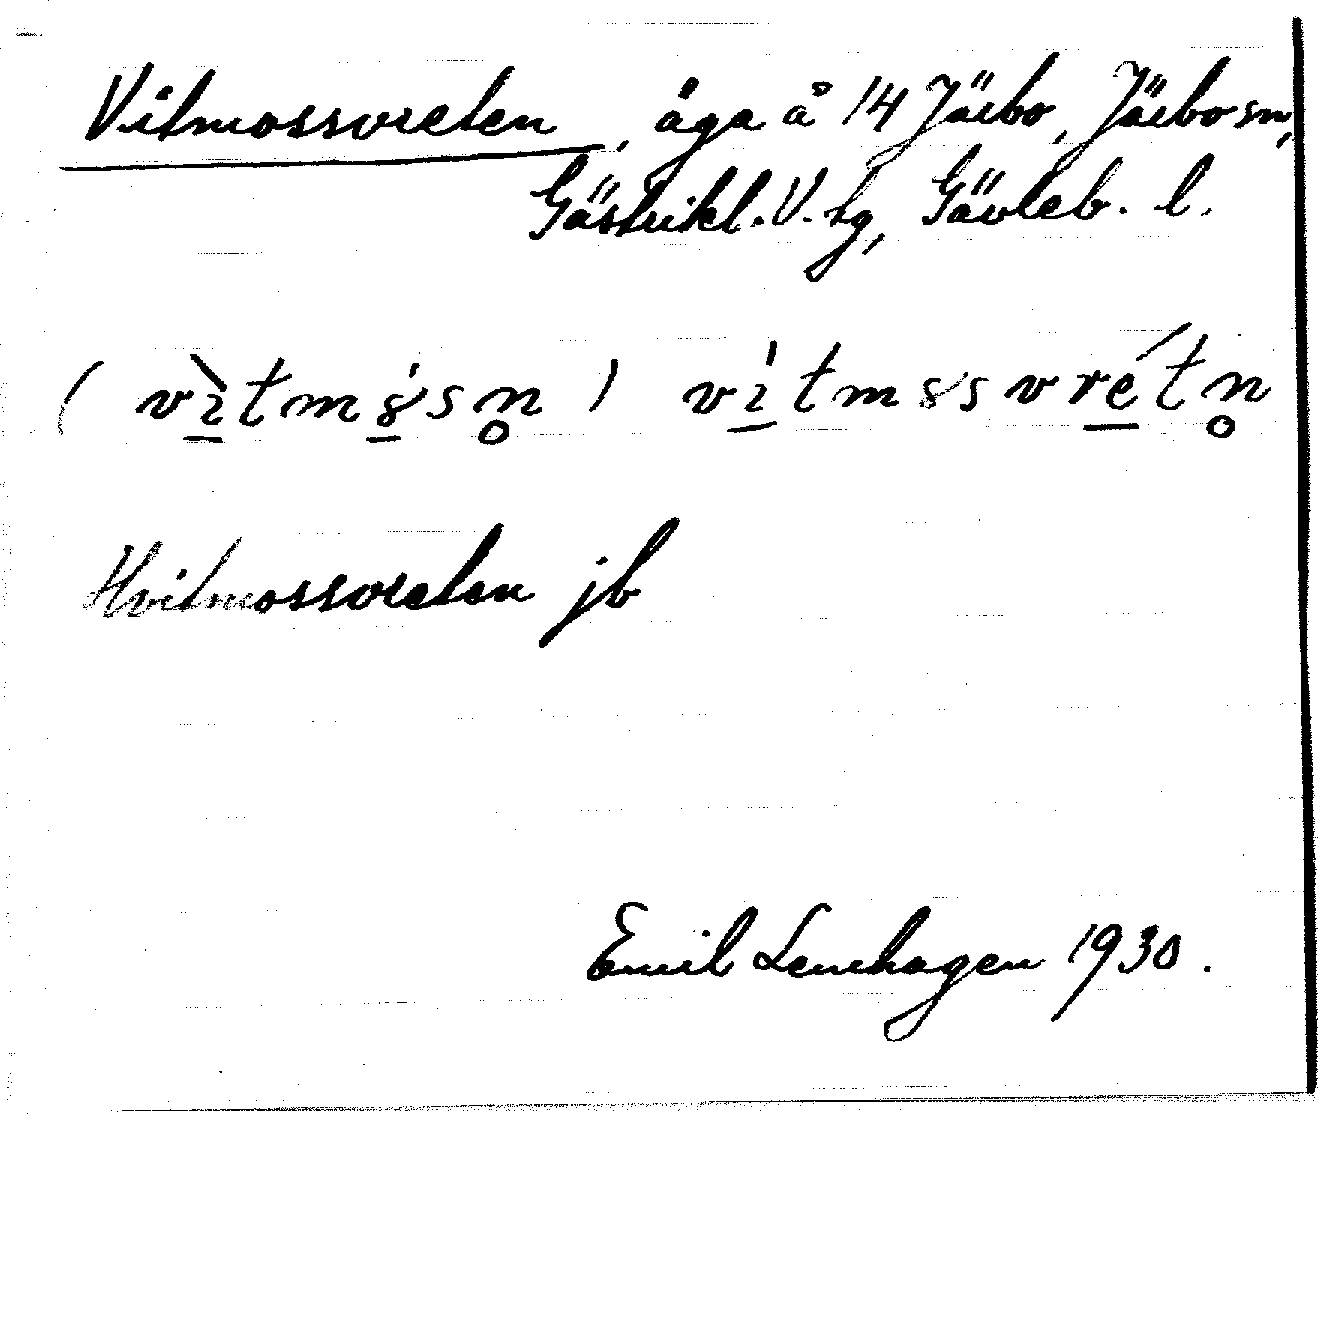 Vitmossvreten, äga å 14 Järbo, Järbo sn,
Gästrikl. V. tg, Gävleb. l.
( vìtmósn̥ ) vítmossvrétn̥
Hvitmossvreten jb
Emil Lenhagen 1930.